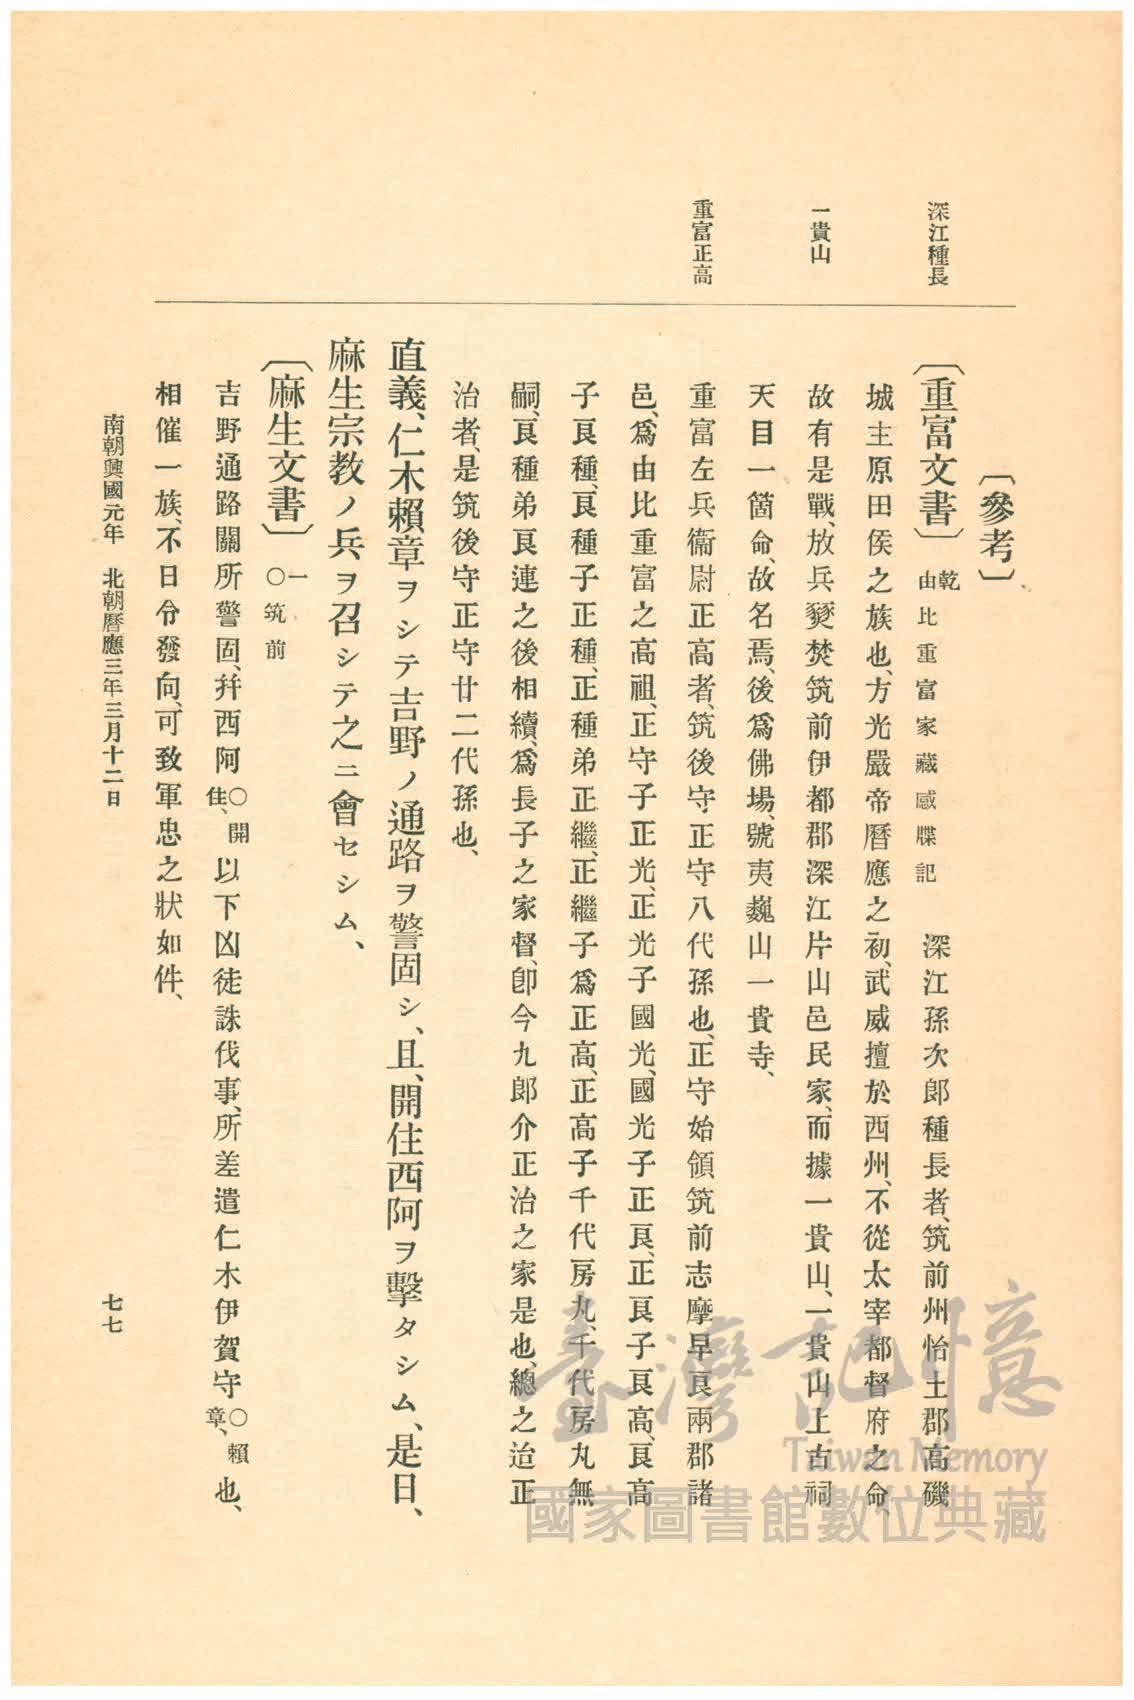 深江種長
一貴山
重富正高
〔參考〕
〔重富文書〕乾 由比重富家藏感牒記 深江孫次郎種長者、筑前州怡土郡高磯
城主原田侯之族也、方光嚴帝曆應之初、武威擅於西州、不從太宰都督府之命、
故有是戰、放兵燹焚筑前伊都郡深江片山邑民家、而據一貴山、一貴山上古祠
天目一箇命、故名焉、後爲佛場、號夷巍山一貴寺、
重富左兵衞尉正高者、筑後守正守八代孫也、正守始領筑前志摩早良兩郡諸
邑、爲由比重富之高祖、正守子正光、正光子國光、國光子正良、正良子良高、良高
子良種、良種子正種、正種弟正繼、正繼子爲正高、正高子千代房丸、千代房丸無
嗣、良種弟良連之後相續、爲長子之家督、卽今九郎介正治之家是也、總之迨正
治者、是筑後守正守廿二代孫也、
直義、仁木賴章ヲシテ吉野ノ通路ヲ警固シ、且、開住西阿ヲ擊タシム、是日、
麻生宗教ノ兵ヲ召シテ之ニ會セシム、
〔麻生文書〕一 〇筑前
吉野通路關所警固、幷西阿〇開住、以下凶徒誅伐事、所差遣仁木伊賀守〇賴章、也、
相催一族、不日令發向、可致軍忠之狀如件、
南朝興國元年 北朝曆應三年三月十二日
七七
臺灣記憶
Taiwan Memory
國家圖書館數位典藏